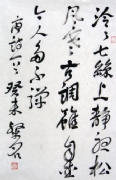 泠々七絲上靜聽松
風寒古調雖自愛
今人多不彈
唐詩一首癸未